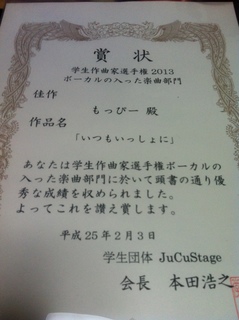 賞状
学生作曲家選手権 2013
ボーカルの入った楽曲部門
佳作
もっぴー 殿
作品名
「いつもいっしょに」
あなたは学生作曲家選手権ボーカルの
入った楽曲部門に於いて頭書の通り優
秀な成績を収められました。
よってこれを讃え賞します。
平成25年2月3日
学生団体 JuCuStage
会長 本田浩之